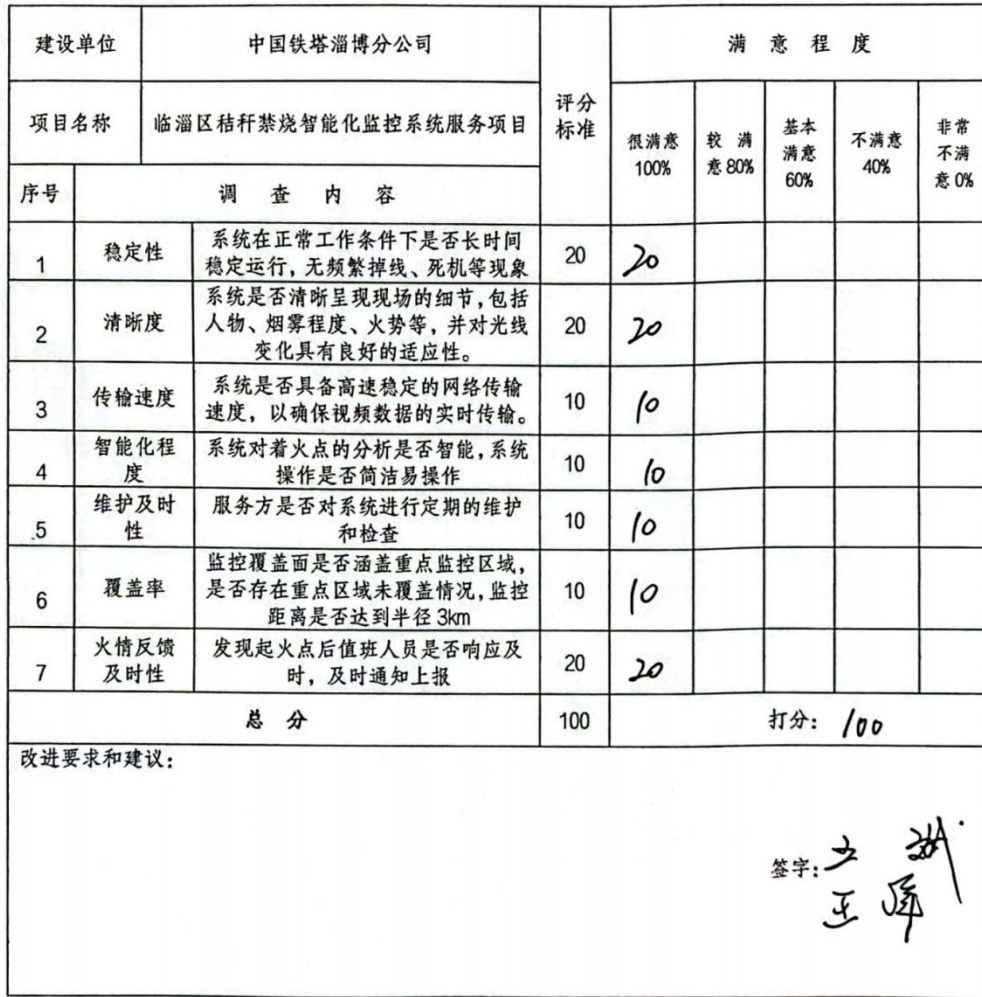 建设单位 中国铁塔淄博分公司 评分标准 满意程度
项目名称 临淄区秸秆禁烧智能化监控系统服务项目 很满意100% 较满意80% 基本满意60% 不满意40% 非常不满意0%
序号 调查内容
1 稳定性 系统在正常工作条件下是否长时间
稳定运行,无频繁掉线、死机等现象 20 20
2 清晰度 系统是否清晰呈现现场的细节,包括
人物、烟雾程度、火势等,并对光线
变化具有良好的适应性。 20 20
3 传输速度 系统是否具备高速稳定的网络传输
速度,以确保视频数据的实时传输。 10 10
4 智能化程度 系统对着火点的分析是否智能,系统
操作是否简洁易操作 10 10
5 维护及时性 服务方是否对系统进行定期的维护
和检查 10 10
6 覆盖率 监控覆盖面是否涵盖重点监控区域,
是否存在重点区域未覆盖情况,监控
距离是否达到半径3km 10 10
7 火情反馈及时性 发现起火点后值班人员是否响应及
时,及时通知上报 20 20
总分 100 打分: 100
改进要求和建议:
签字: